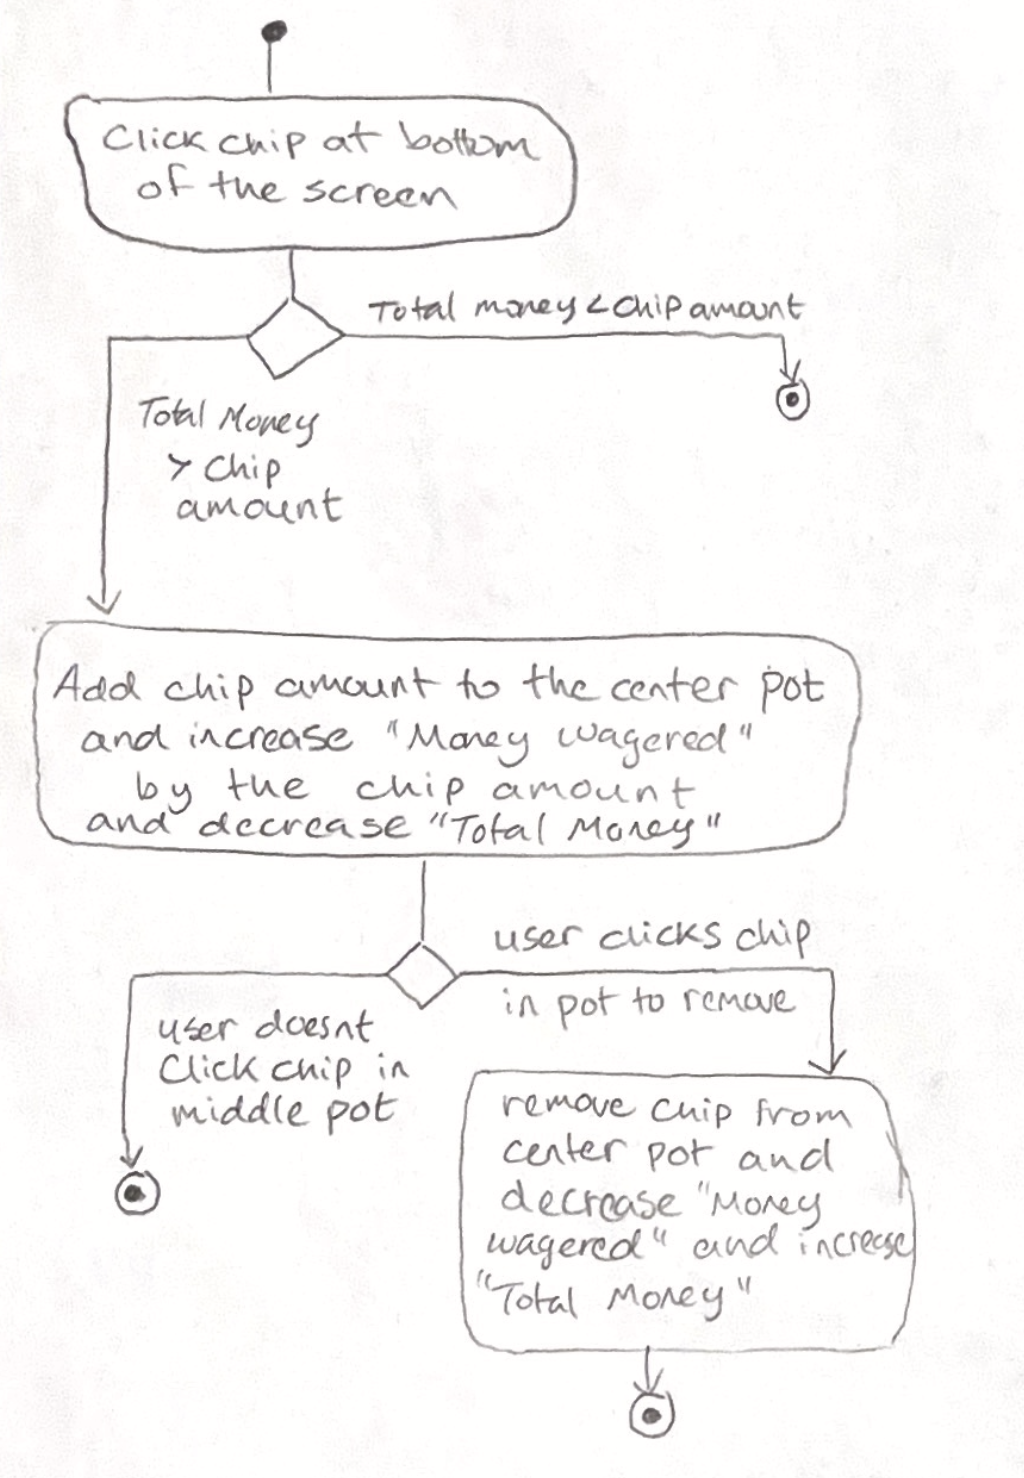 Click chip at bottom
of the screen
Total money < chip amount
Total Money
> Chip
amount
Add chip amount to the center pot
and increase "Money wagered"
by the chip amount
and decrease "Total Money"
user clicks chip
in pot to remove
user doesnt
Click chip in
middle pot
remove chip from
center pot and
decrease "Money
wagered" and increase
"Total Money"